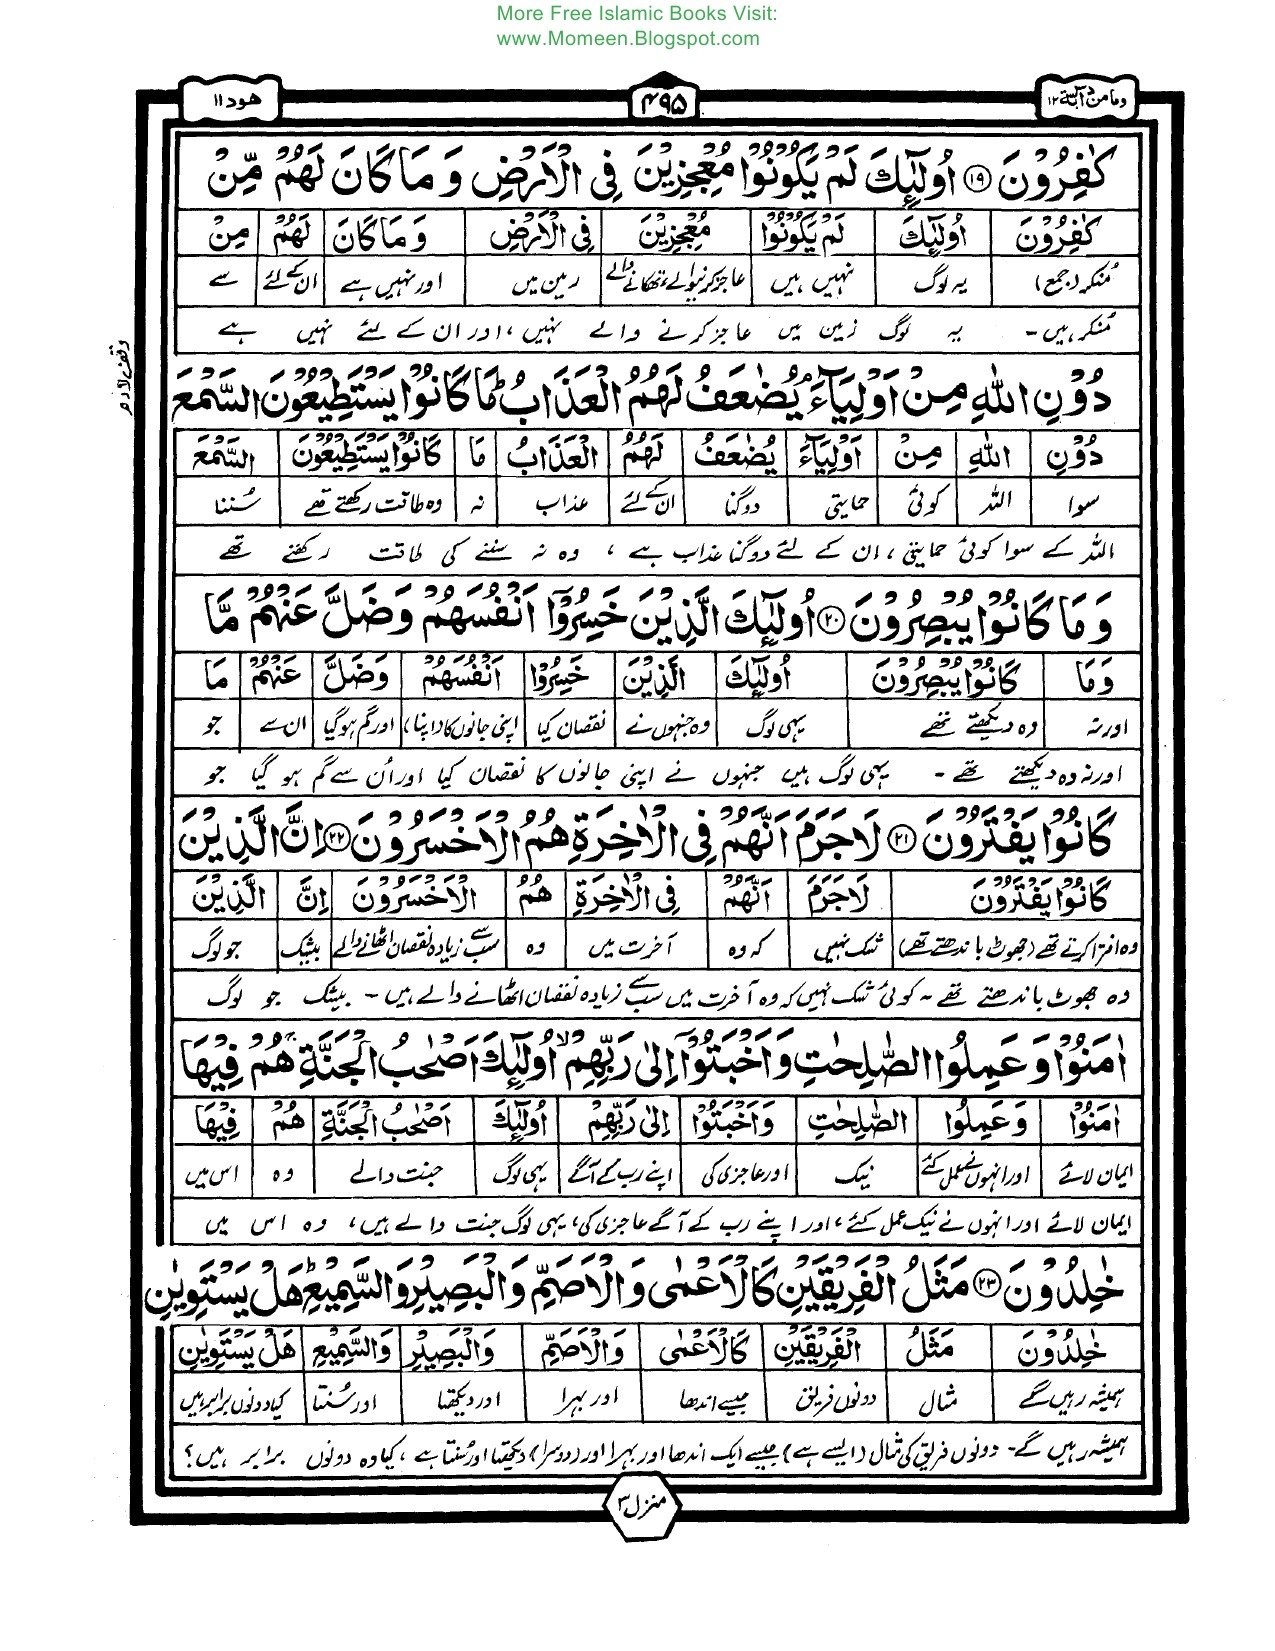 More Free Islamic Books Visit:
www.Momeen.Blogspot.com
وما من دآبة ۱۲
۴۹۵
ھود ۱۱
كٰفِرُوْنَ ۱۹ اُولٰٓئِكَ لَمْ يَكُوْنُوْا مُعْجِزِيْنَ فِى الْاَرْضِ وَ مَا كَانَ لَهُمْ مِّنْ
كٰفِرُوْنَ اُولٰٓئِكَ لَمْ يَكُوْنُوْا مُعْجِزِيْنَ فِى الْاَرْضِ وَ مَا كَانَ لَهُمْ مِنْ
مُنکر (جمع) یہ لوگ نہیں ہیں عاجز کرنیوالے، تھکانے والے زمین میں اور نہیں ہے ان کے لئے سے
مُنکر ہیں۔ یہ لوگ زمین میں عاجز کرنے والے نہیں، اور ان کے لئے نہیں ہے
وقف لازم
دُوْنِ اللّٰهِ مِنْ اَوْلِيَآءَ ۘ يُضٰعَفُ لَهُمُ الْعَذَابُ ؕ مَا كَانُوْا يَسْتَطِيْعُوْنَ السَّمْعَ
دُوْنِ اللّٰهِ مِنْ اَوْلِيَآءَ يُضٰعَفُ لَهُمُ الْعَذَابُ مَا كَانُوْا يَسْتَطِيْعُوْنَ السَّمْعَ
سوا اللہ کوئی حمایتی دوگنا ان کے لئے عذاب نہ وہ طاقت رکھتے تھے سُننا
اللہ کے سوا کوئی حمایتی، ان کے لئے دوگنا عذاب ہے، وہ نہ سننے کی طاقت رکھتے تھے
وَ مَا كَانُوْا يُبْصِرُوْنَ ۲۰ اُولٰٓئِكَ الَّذِيْنَ خَسِرُوْۤا اَنْفُسَهُمْ وَضَلَّ عَنْهُمْ مَّا
وَ مَا كَانُوْا يُبْصِرُوْنَ اُولٰٓئِكَ الَّذِيْنَ خَسِرُوْا اَنْفُسَهُمْ وَضَلَّ عَنْهُمْ مَا
اور نہ وہ دیکھتے تھے یہی لوگ وہ جنہوں نے نقصان کیا اپنی جانوں کا (اپنا) اور گم ہوگیا ان سے جو
اور نہ وہ دیکھتے تھے۔ یہی لوگ ہیں جنہوں نے اپنی جانوں کا نقصان کیا اور اُن سے گم ہو گیا جو
كَانُوْا يَفْتَرُوْنَ ۲۱ لَا جَرَمَ اَنَّهُمْ فِى الْاٰخِرَةِ هُمُ الْاَخْسَرُوْنَ ۲۲ اِنَّ الَّذِيْنَ
كَانُوْا يَفْتَرُوْنَ لَا جَرَمَ اَنَّهُمْ فِى الْاٰخِرَةِ هُمُ الْاَخْسَرُوْنَ اِنَّ الَّذِيْنَ
وہ افترا کرتے تھے (جھوٹ باندھتے تھے) شک نہیں کہ وہ آخرت میں وہ سب سے زیادہ نقصان اٹھانے والے بیشک جو لوگ
وہ جھوٹ باندھتے تھے۔ کوئی شک نہیں کہ وہ آخرت میں سب سے زیادہ نقصان اٹھانے والے ہیں۔ بیشک جو لوگ
اٰمَنُوْا وَ عَمِلُوا الصّٰلِحٰتِ وَ اَخْبَتُوْۤا اِلٰى رَبِّهِمْ ۙ اُولٰٓئِكَ اَصْحٰبُ الْجَنَّةِ ۚ هُمْ فِيْهَا
اٰمَنُوْا وَ عَمِلُوا الصّٰلِحٰتِ وَ اَخْبَتُوْا اِلٰى رَبِّهِمْ اُولٰٓئِكَ اَصْحٰبُ الْجَنَّةِ هُمْ فِيْهَا
ایمان لائے اور انہوں نے عمل کئے نیک اور عاجزی کی اپنے رب کے آگے یہی لوگ جنت والے وہ اس میں
ایمان لائے اور انہوں نے نیک عمل کئے، اور اپنے رب کے آگے عاجزی کی، یہی لوگ جنت والے ہیں، وہ اس میں
خٰلِدُوْنَ ۲۳ مَثَلُ الْفَرِيْقَيْنِ كَالْاَعْمٰى وَ الْاَصَمِّ وَ الْبَصِيْرِ وَ السَّمِيْعِ ؕ هَلْ يَسْتَوِيٰنِ
خٰلِدُوْنَ مَثَلُ الْفَرِيْقَيْنِ كَالْاَعْمٰى وَ الْاَصَمِّ وَ الْبَصِيْرِ وَ السَّمِيْعِ هَلْ يَسْتَوِيٰنِ
ہمیشہ رہیں گے مثال دونوں فریق جیسے اندھا اور بہرا اور دیکھتا اور سُنتا کیا دونوں برابر ہیں
ہمیشہ رہیں گے۔ دونوں فریق کی مثال (ایسے ہے) جیسے ایک اندھا اور بہرا اور (دوسرا) دیکھتا اور سُنتا ہے، کیا وہ دونوں برابر ہیں؟
منزل ۳